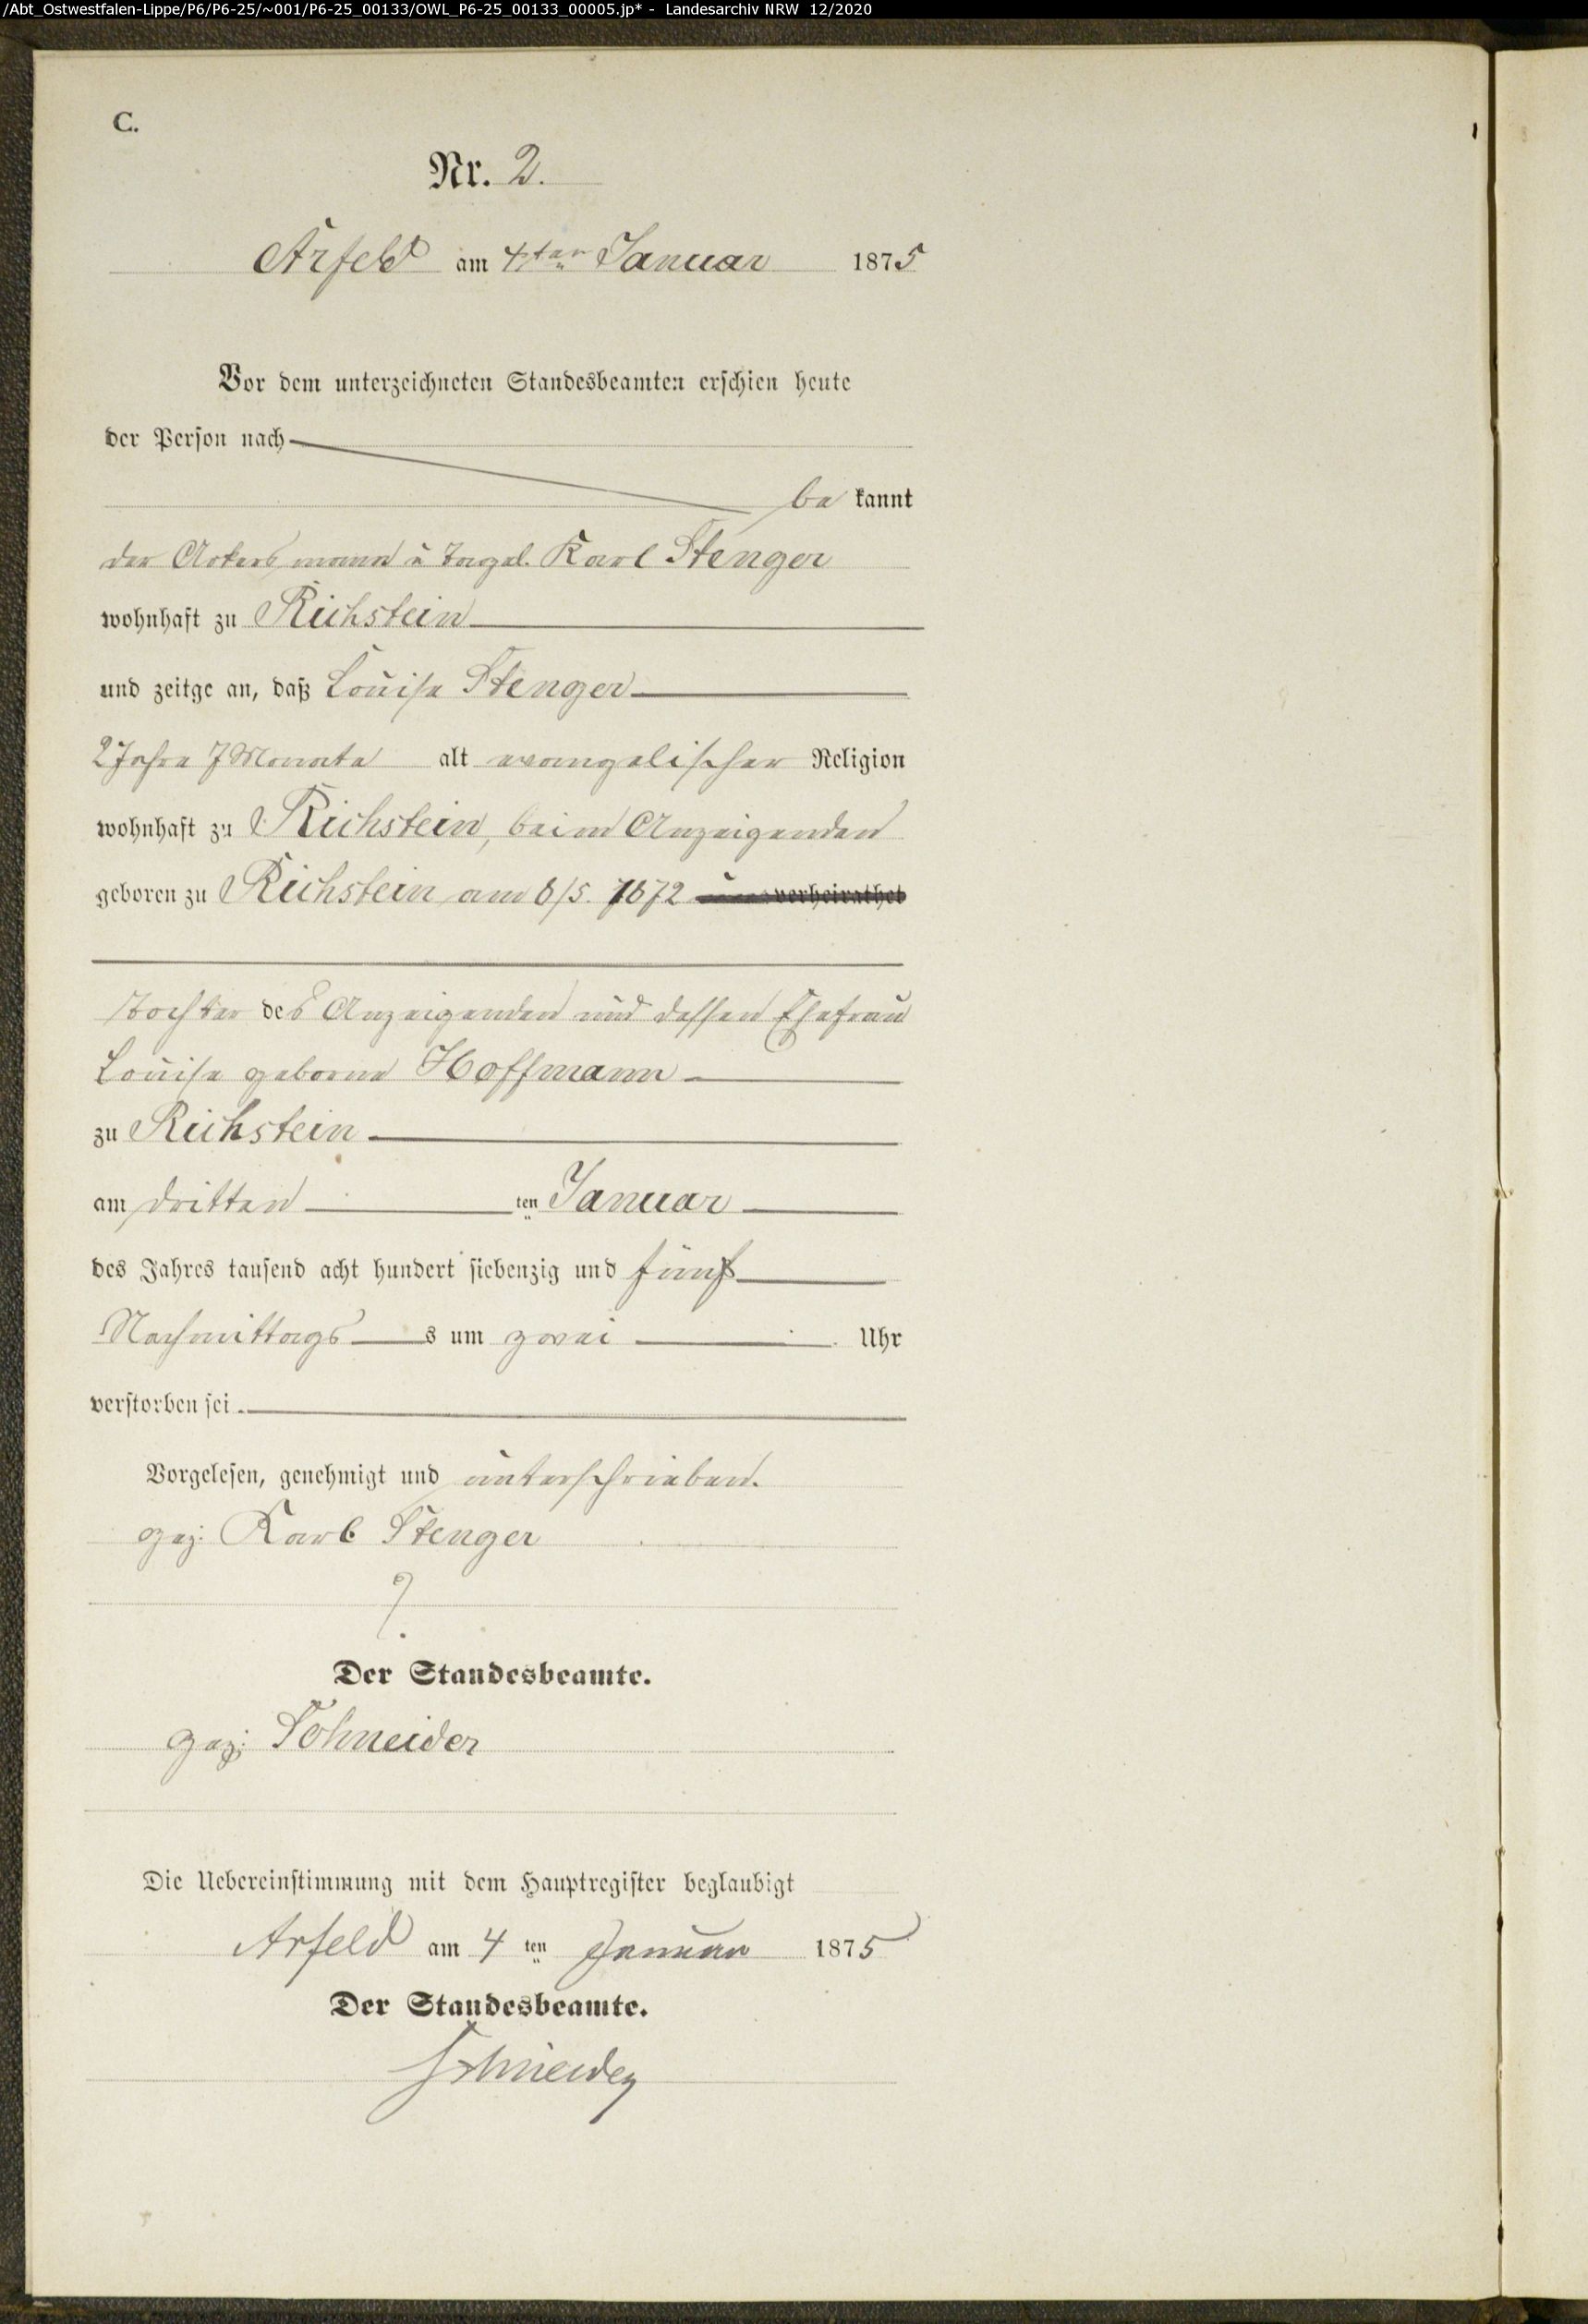 /Abt_Ostwestfalen-Lippe/P6/P6-25/~001/P6-25_00133/OWL_P6-25_00133_00005.jp* - Landesarchiv NRW 12/2020
C.
Nr. 2.
Arfeld am 4ten Januar 1875
Vor dem unterzeichneten Standesbeamten erschien heute
der Person nach
be kannt
der Ackersmann u Tagel. Karl Stenger
wohnhaft zu Richstein
und zeitge an, daß Louise Stenger
2 Jahre 7 Monate alt evangelischer Religion
wohnhaft zu Richstein, beim Anzeigenden
geboren zu Richstein am 6/5. 1872 verheirathet
Tochter des Anzeigenden und dessen Ehefrau
Louise geborne Hoffmann
zu Richstein
am dritten ten Januar
des Jahres tausend acht hundert siebenzig und fünf
Nachmittags s um zwei Uhr
verstorben sei
Vorgelesen, genehmigt und unterschrieben.
gez. Karl Stenger
Der Standesbeamte.
gez: Schneider
Die Uebereinstimmung mit dem Hauptregister beglaubigt
Arfeld am 4 ten Januar 1875
Der Standesbeamte.
Schneider